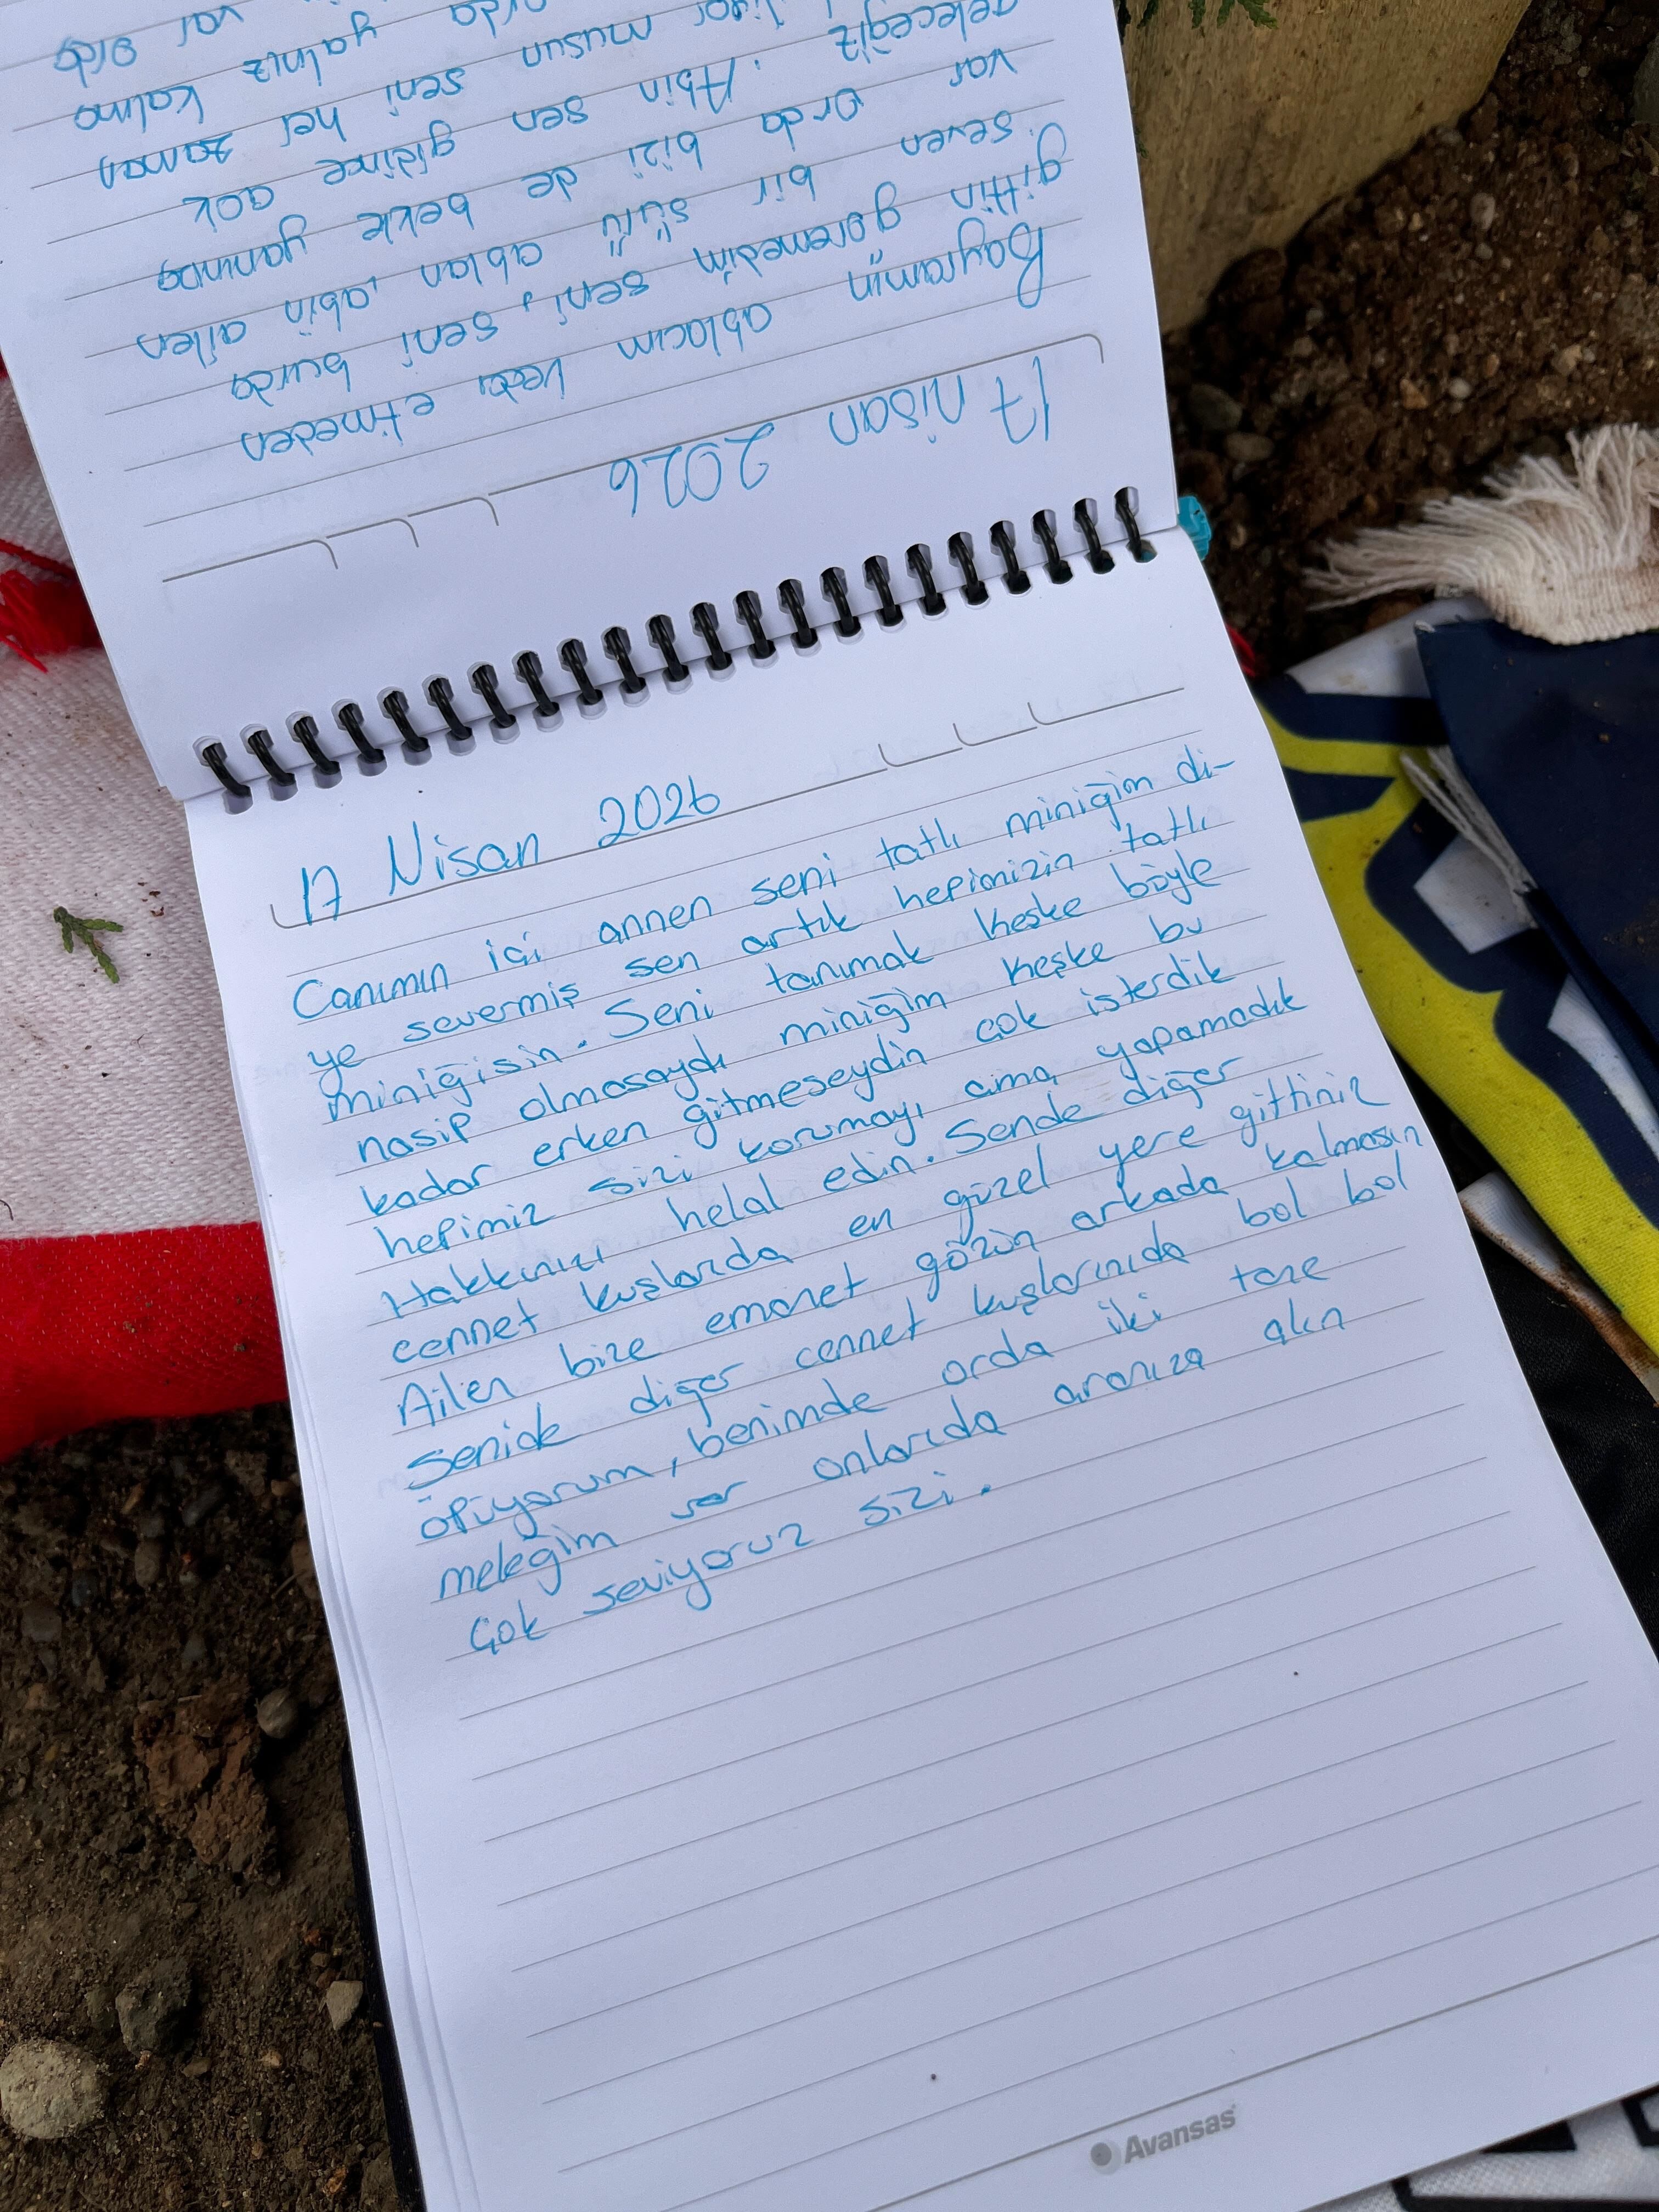 17 Nisan 2026
Bayramın ablacım veda etmeden
gittin göremedim seni, seni burda
seven bir sürü ablan, abin ailen
var orda bizi de bekle yanına
geleceğiz. Abin sen gidince çok
musun seni her zaman
yalnız kalma
var
17 Nisan 2026
Canımın içi annen seni tatlı miniğim di-
ye severmiş sen artık hepimizin tatlı
miniğisin. Seni tanımak keşke böyle
nasip olmasaydı miniğim keşke bu
kadar erken gitmeseydin çok isterdik
hepimiz sizi korumayı ama yapamadık
Hakkınızı helal edin. Sende diğer
cennet kuşlarıda en güzel yere gittiniz
Ailen bize emanet gözün arkada kalmasın
Senide diğer cennet kuşlarınıda bol bol
öpüyorum, benimde orda iki tane
meleğim var onlarıda aranıza alın
Çok seviyoruz sizi.
Avansas